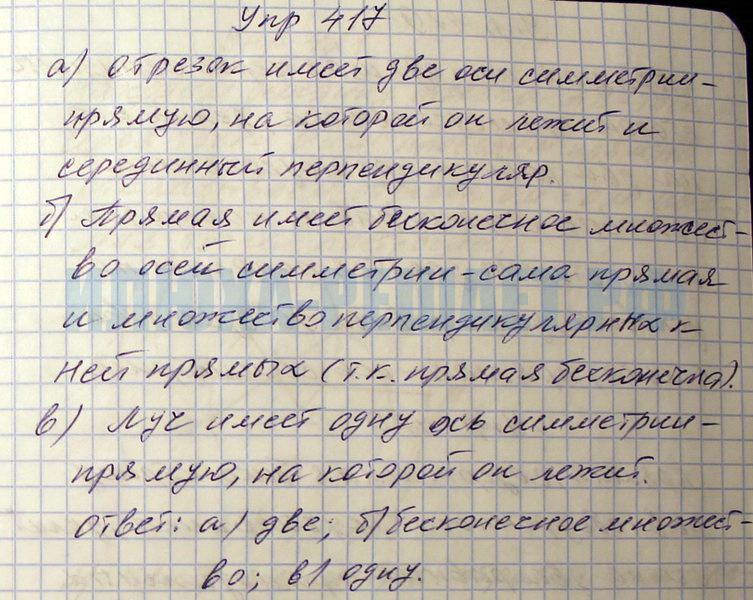 Упр 417
а) отрезок имеет две оси симметрии -
прямую, на которой он лежит и
серединный перпендикуляр.
б) Прямая имеет бесконечное множест-
во осей симметрии - сама прямая
и множество перпендикулярных к
ней прямых (т.к. прямая бесконечна).
в) Луч имеет одну ось симметрии -
прямую, на которой он лежит.
ответ: а) две; б) бесконечное множест-
во; в) одну.